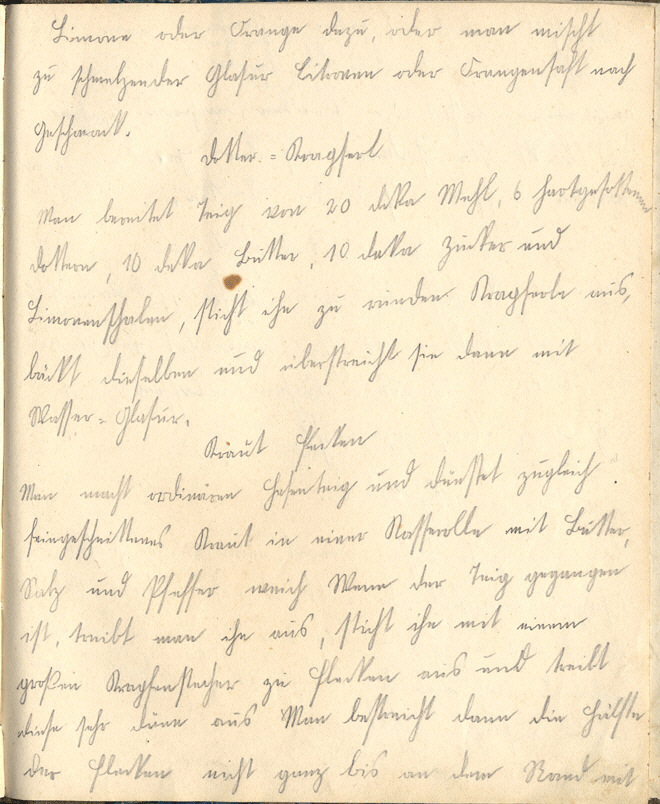 Limone oder Orange dazu, oder man mischt
zu schmelzender Glasur Citronen oder Orangensaft nach
Geschmack.
Dotter-Krapferl
Man bereitet Teig von 20 deka Mehl, 6 hartgesottenen
Dottern, 10 deka Butter, 10 deka Zucker und
Limonenschalen, sticht ihn zu runden Krapferln aus,
bäckt dieselben und überstreicht sie dann mit
Wasser-Glasur.
Kraut Flecken
Man macht ordinären Hefenteig und dünstet zugleich
feingeschnittenes Kraut in einer Kasserolle mit Butter,
Salz und Pfeffer weich Wenn der Teig gegangen
ist, treibt man ihn aus, sticht ihn mit einem
großen Krapfenstecher zu Flecken aus und treibt
diese sehr dünn aus Man bestreicht dann die Hälfte
der Flecken nicht ganz bis an den Rand mit